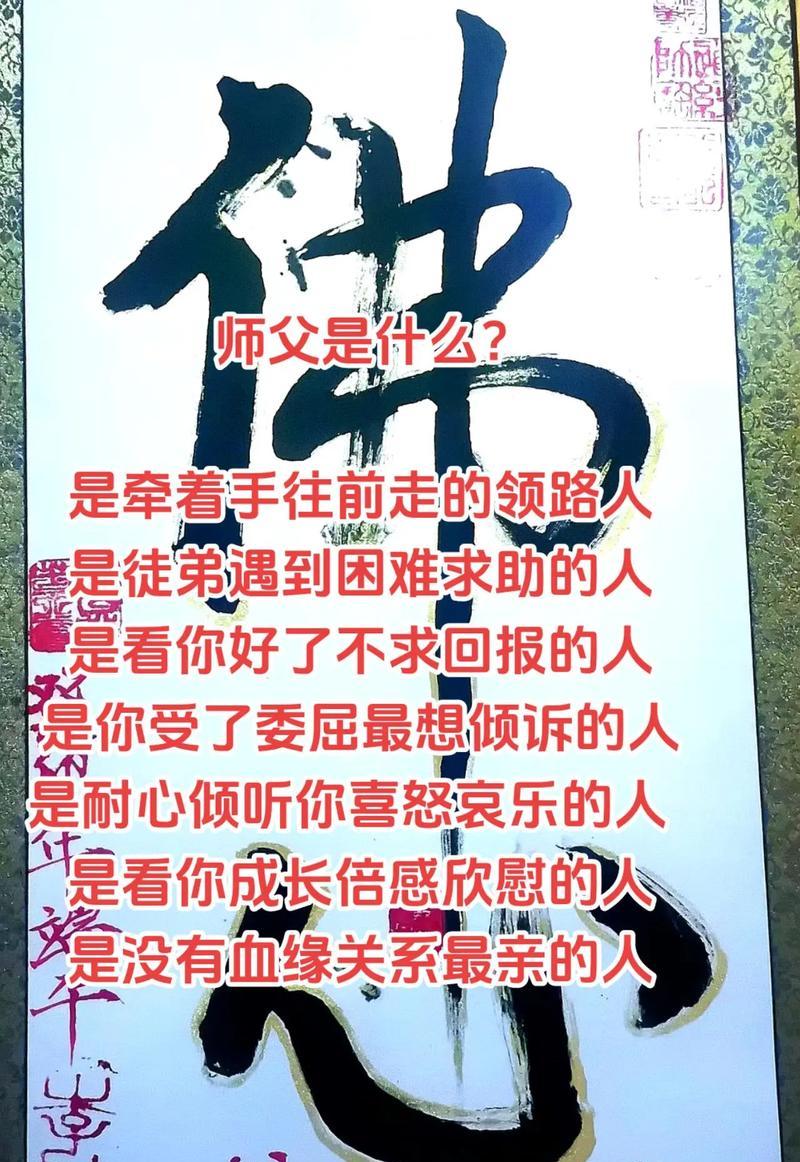 佛心
师父是什么？
是牵着手往前走的领路人
是徒弟遇到困难求助的人
是看你好了不求回报的人
是你受了委屈最想倾诉的人
是耐心倾听你喜怒哀乐的人
是看你成长倍感欣慰的人
是没有血缘关系最亲的人